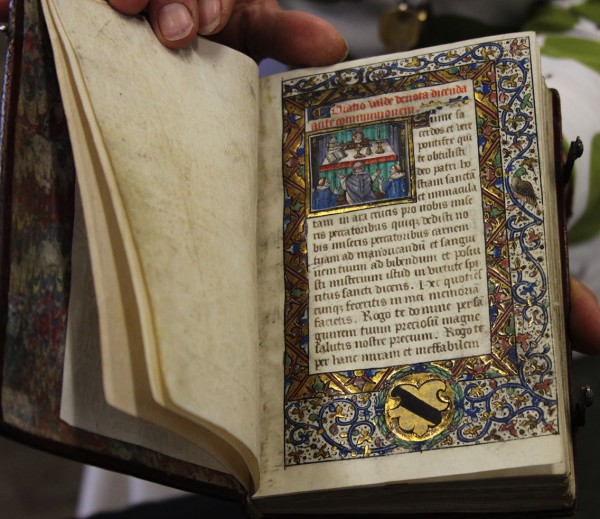 Oratio valde devota dicenda
ante communionem
Sume sa
cerdos et vere
pontifex qui
te obtulisti
deo patri ho
stiam sanctā
et immacula
tam in ara crucis pro nobis mise
ris peccatoribus quiqȝ dedisti no
bis miseris peccatoribus carnem
tuam ad manducandū et sangui
nem tuum ad bibendum et posui
sti misterium istud in virtute spi
ritus sancti dicens. Hec quotiēs
cunqȝ feceritis in mei memoriā
facietis. Rogo te domine per sā
guinem tuum preciosū magne
salutis nostre precium. Rogo te
per hanc miram et ineffabilem